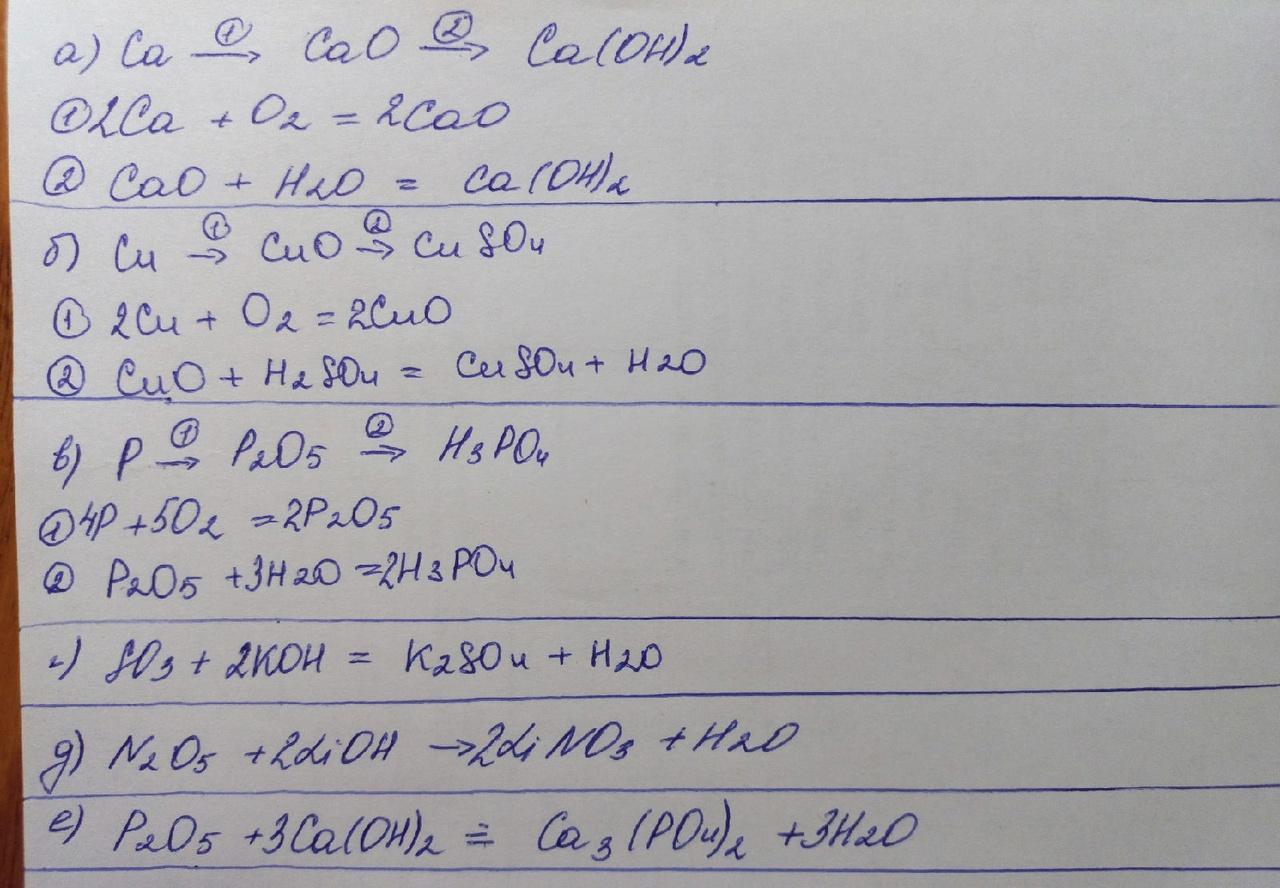 а) Ca ①→ CaO ②→ Ca(OH)2
① 2Ca + O2 = 2CaO
② CaO + H2O = Ca(OH)2
б) Cu ①→ CuO ②→ CuSO4
① 2Cu + O2 = 2CuO
② CuO + H2SO4 = CuSO4 + H2O
в) P ①→ P2O5 ②→ H3PO4
① 4P + 5O2 = 2P2O5
② P2O5 + 3H2O = 2H3PO4
г) SO3 + 2KOH = K2SO4 + H2O
д) N2O5 + 2LiOH → 2LiNO3 + H2O
е) P2O5 + 3Ca(OH)2 = Ca3(PO4)2 + 3H2O